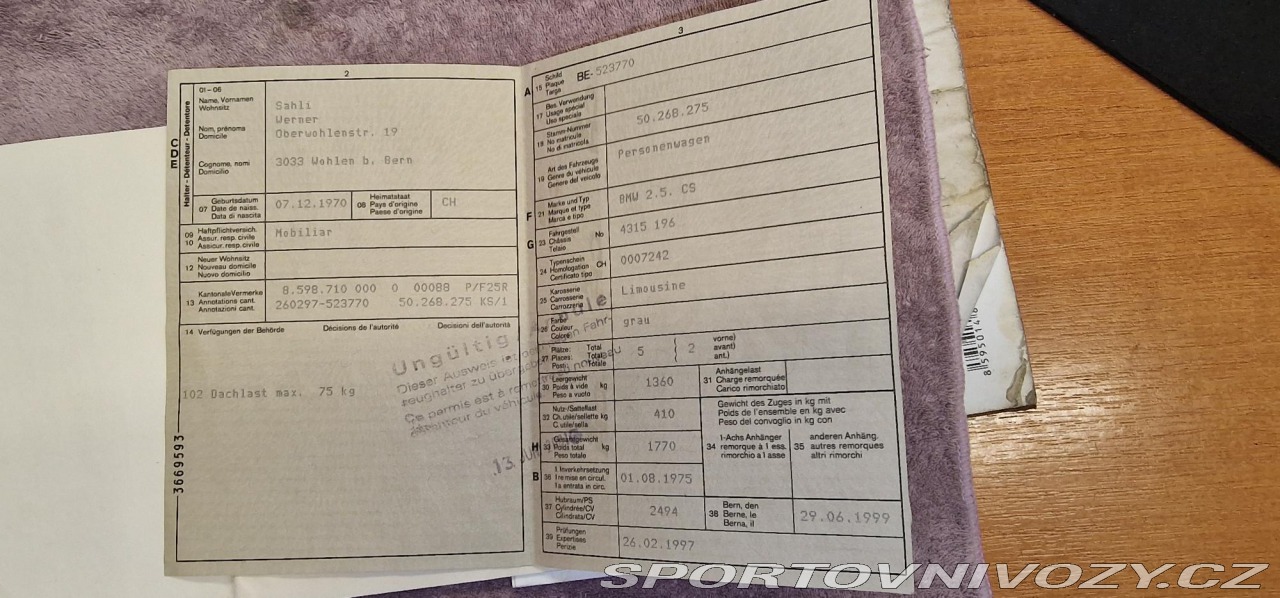 2
01-06
Name, Vornamen
Wohnsitz
Nom, prénoms
Domicile
Cognome, nomi
Domicilio
C D E
Halter - Détenteur - Detentore
Sahli
Werner
Oberwohlenstr. 19
3033 Wohlen b. Bern
07 Geburtsdatum
Date de naiss.
Data di nascita
07.12.1970
08 Heimatstaat
Pays d'origine
Paese d'origine
CH
09 Haftpflichtversich.
10 Assur. resp. civile
Assicur. resp. civile
Mobiliar
12 Neuer Wohnsitz
Nouveau domicile
Nuovo domicilio
13 Kantonale Vermerke
Annotations cant.
Annotazioni cant.
8.598.710 000 0 00088 P/F25R
260297-523770 50.268.275 KS/1
14 Verfügungen der Behörde Décisions de l'autorité Decisioni dell'autorità
102 Dachlast max. 75 kg
Ungültig
Dieser Ausweis ist
Ce permis est à
détenteur du véhicule
13. JU
3669593
3
A 15 Schild
Plaque
Targa
BE-523770
17 Bes. Verwendung
Usage spécial
Uso speciale
18 Stamm-Nummer
No matricule
No di matricola
50.268.275
19 Art des Fahrzeugs
Genre du véhicule
Genere del veicolo
Personenwagen
F 21 Marke und Typ
Marque et type
Marca e tipo
BMW 2.5. CS
G 23 Fahrgestell
Châssis No
Telaio
4315 196
24 Typenschein
Homologation CH
Certificato tipo
0007242
25 Karosserie
Carrosserie
Carrozzeria
Limousine
26 Farbe
Couleur
Colore
grau
27 Plätze: Total
Places: Total
Posti: Totale
5 { 2
vorne)
avant)
ant.)
30 Leergewicht
Poids à vide kg
Peso a vuoto
1360
31 Anhängelast
Charge remorquée
Carico rimorchiato
32 Nutz-/Sattellast
Ch. utile/sellette kg
C. utile/sella
410
Gewicht des Zuges in kg mit
Poids de l'ensemble en kg avec
Peso del convoglio in kg con
H 33 Gesamtgewicht
Poids total kg
Peso totale
1770
34 1-Achs Anhänger
remorque à 1 ess.
rimorchio a 1 asse
35 anderen Anhäng.
autres remorques
altri rimorchi
B 36 1. Inverkehrsetzung
1re mise en circul.
1a entrata in circ.
01.08.1975
37 Hubraum/PS
Cylindrée/CV
Cilindrata/CV
2494
38 Bern, den
Berne, le
Berna, il
29.06.1999
39 Prüfungen
Expertises
Perizie
26.02.1997
8 595014
SPORTOVNIVOZY.CZ